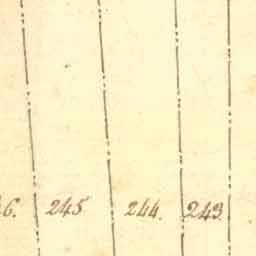 6. 245 244. 243.